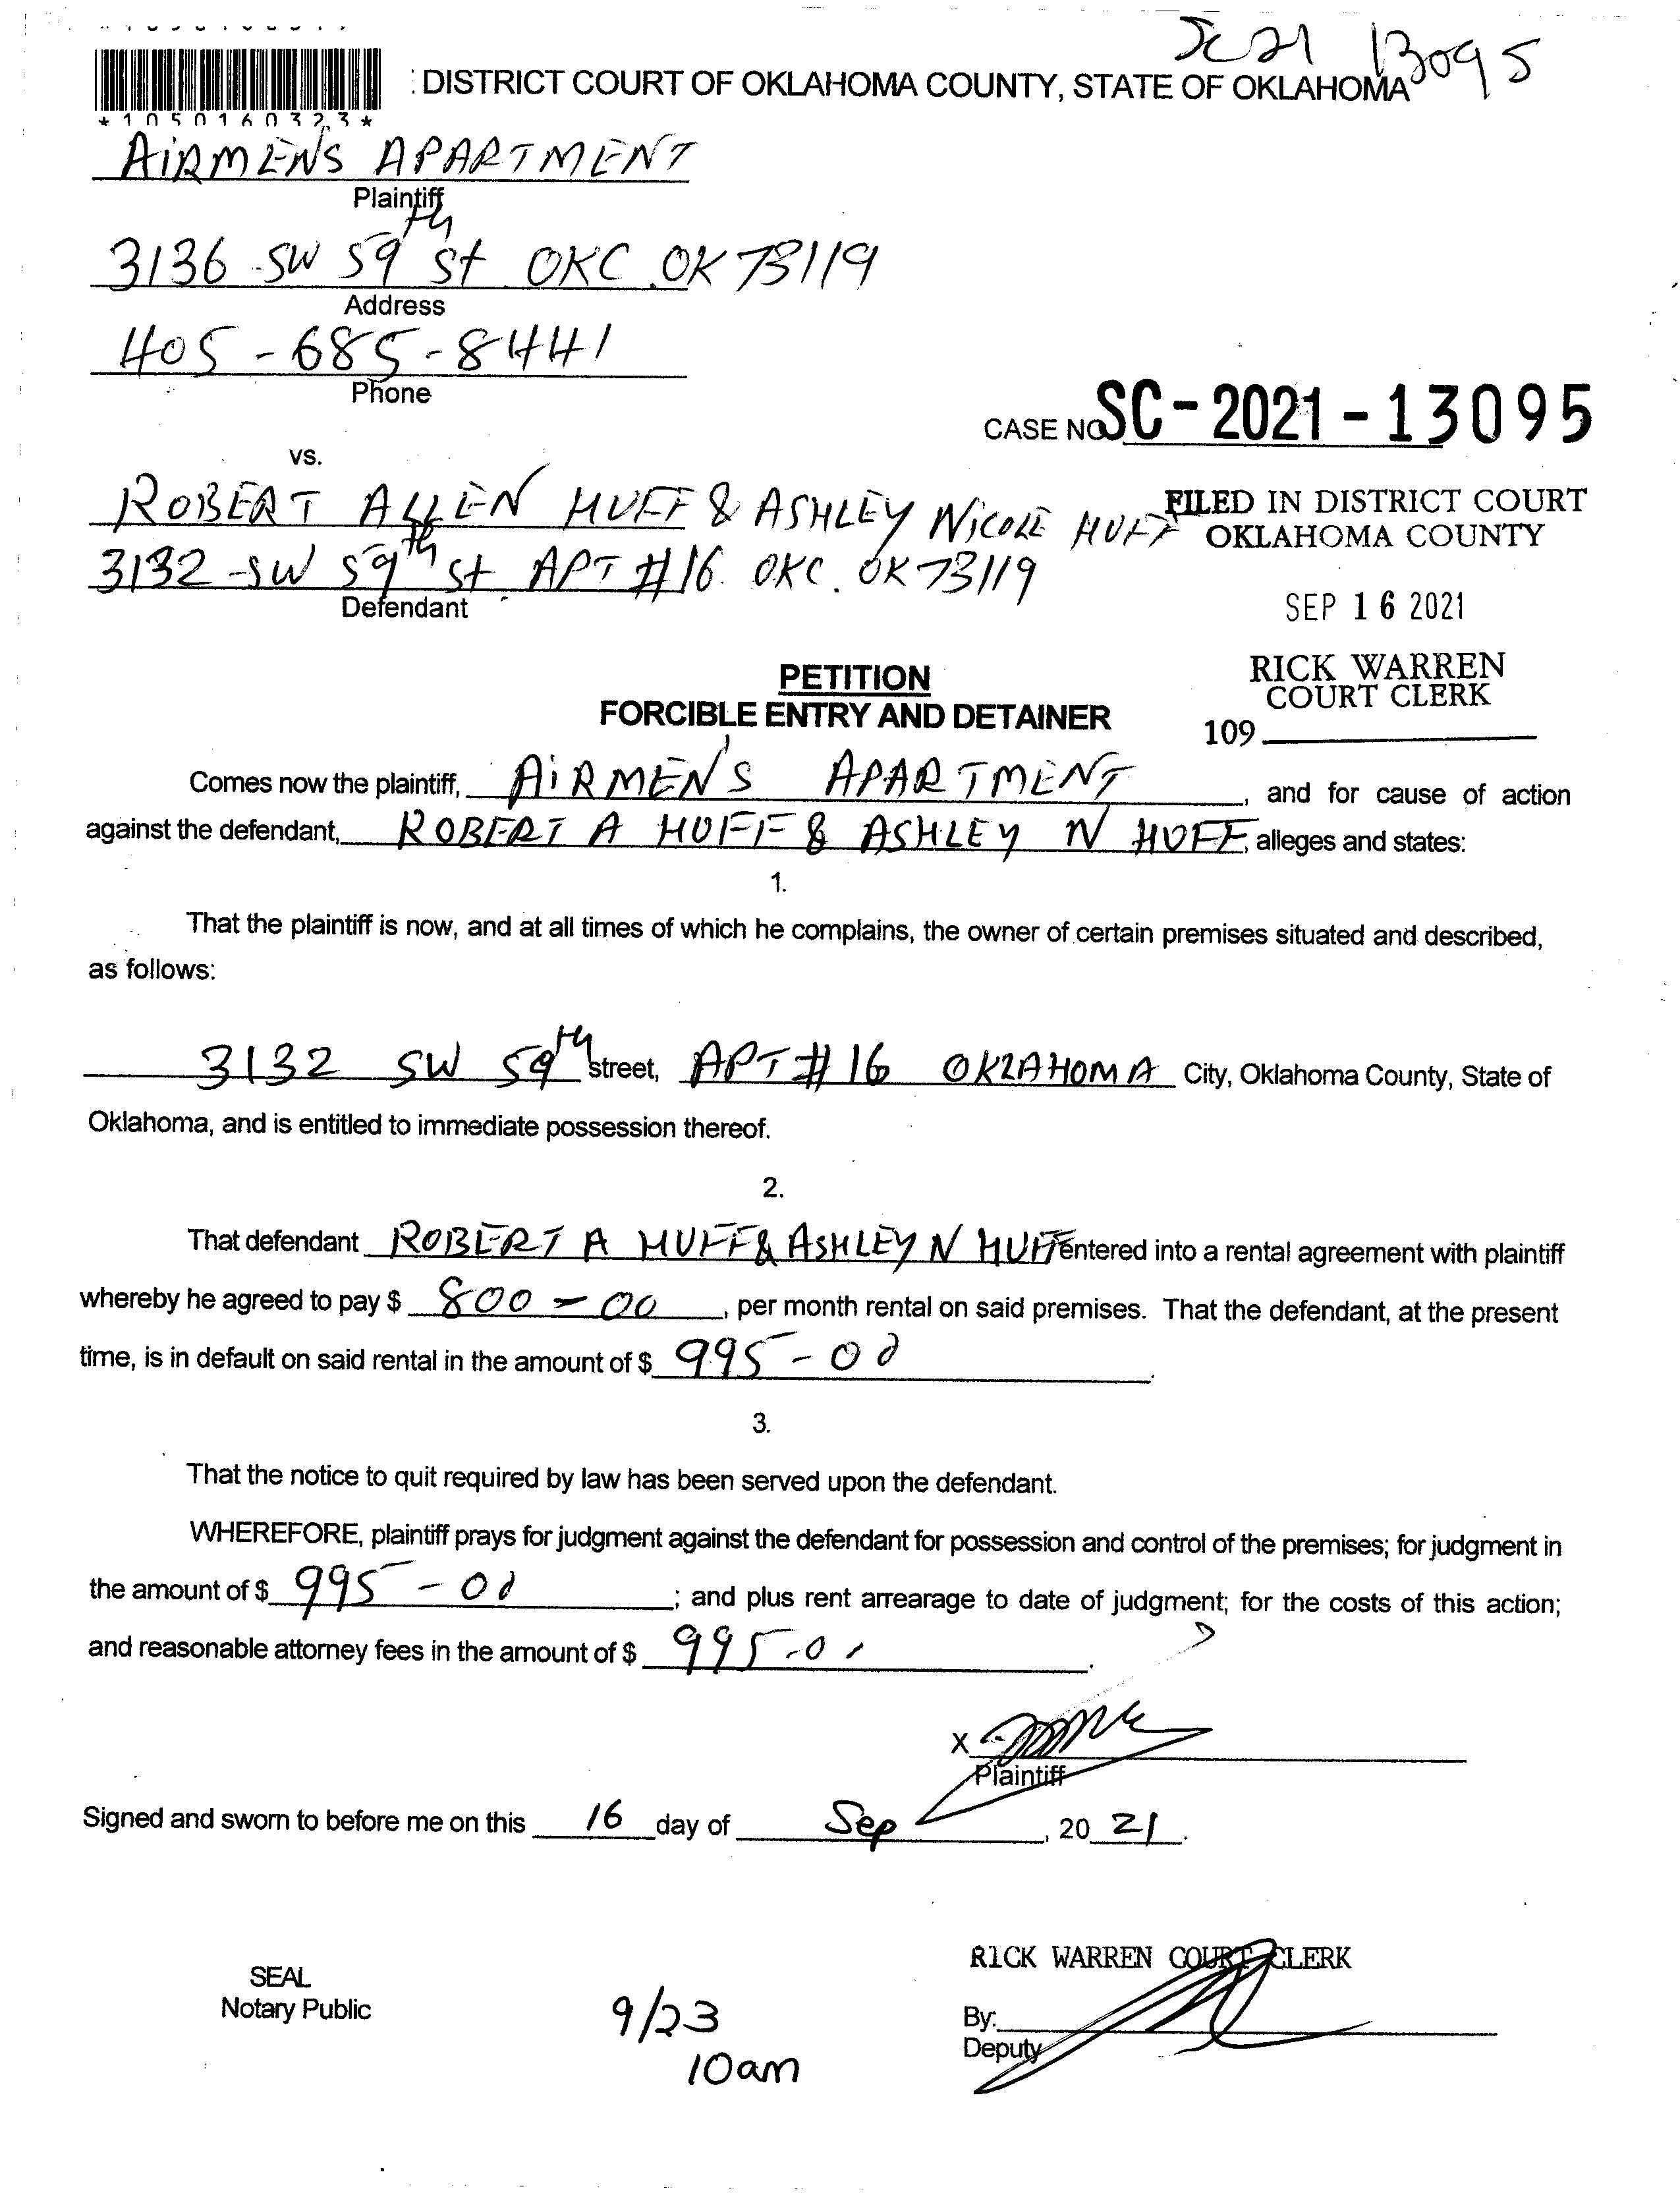 Sc 21 13095
: DISTRICT COURT OF OKLAHOMA COUNTY, STATE OF OKLAHOMA
*1050160323*
AIRMENS APARTMENT
Plaintiff
3136 SW 59th St OKC OK 73119
Address
405-685-8441
Phone
CASE NO SC-2021-13095
vs.
ROBERT ALLEN HUFF & ASHLEY NICOLE HUFF
FILED IN DISTRICT COURT
OKLAHOMA COUNTY
3132 SW 59th St APT #16. OKC. OK 73119
Defendant
SEP 16 2021
RICK WARREN
COURT CLERK
109
PETITION
FORCIBLE ENTRY AND DETAINER
Comes now the plaintiff, AIRMEN'S APARTMENT, and for cause of action
against the defendant, ROBERT A HUFF & ASHLEY N HUFF, alleges and states:
1.
That the plaintiff is now, and at all times of which he complains, the owner of certain premises situated and described,
as follows:
3132 SW 59th street, APT # 16 OKLAHOMA City, Oklahoma County, State of
Oklahoma, and is entitled to immediate possession thereof.
2.
That defendant ROBERT A HUFF & ASHLEY N HUFF entered into a rental agreement with plaintiff
whereby he agreed to pay $ 800-00, per month rental on said premises. That the defendant, at the present
time, is in default on said rental in the amount of $ 995-00.
3.
That the notice to quit required by law has been served upon the defendant.
WHEREFORE, plaintiff prays for judgment against the defendant for possession and control of the premises; for judgment in
the amount of $ 995-00; and plus rent arrearage to date of judgment; for the costs of this action;
and reasonable attorney fees in the amount of $ 995-0.
X
Plaintiff
Signed and sworn to before me on this 16 day of Sep, 20 21.
SEAL
Notary Public
9/23
10am
RICK WARREN COURT CLERK
By:
Deputy